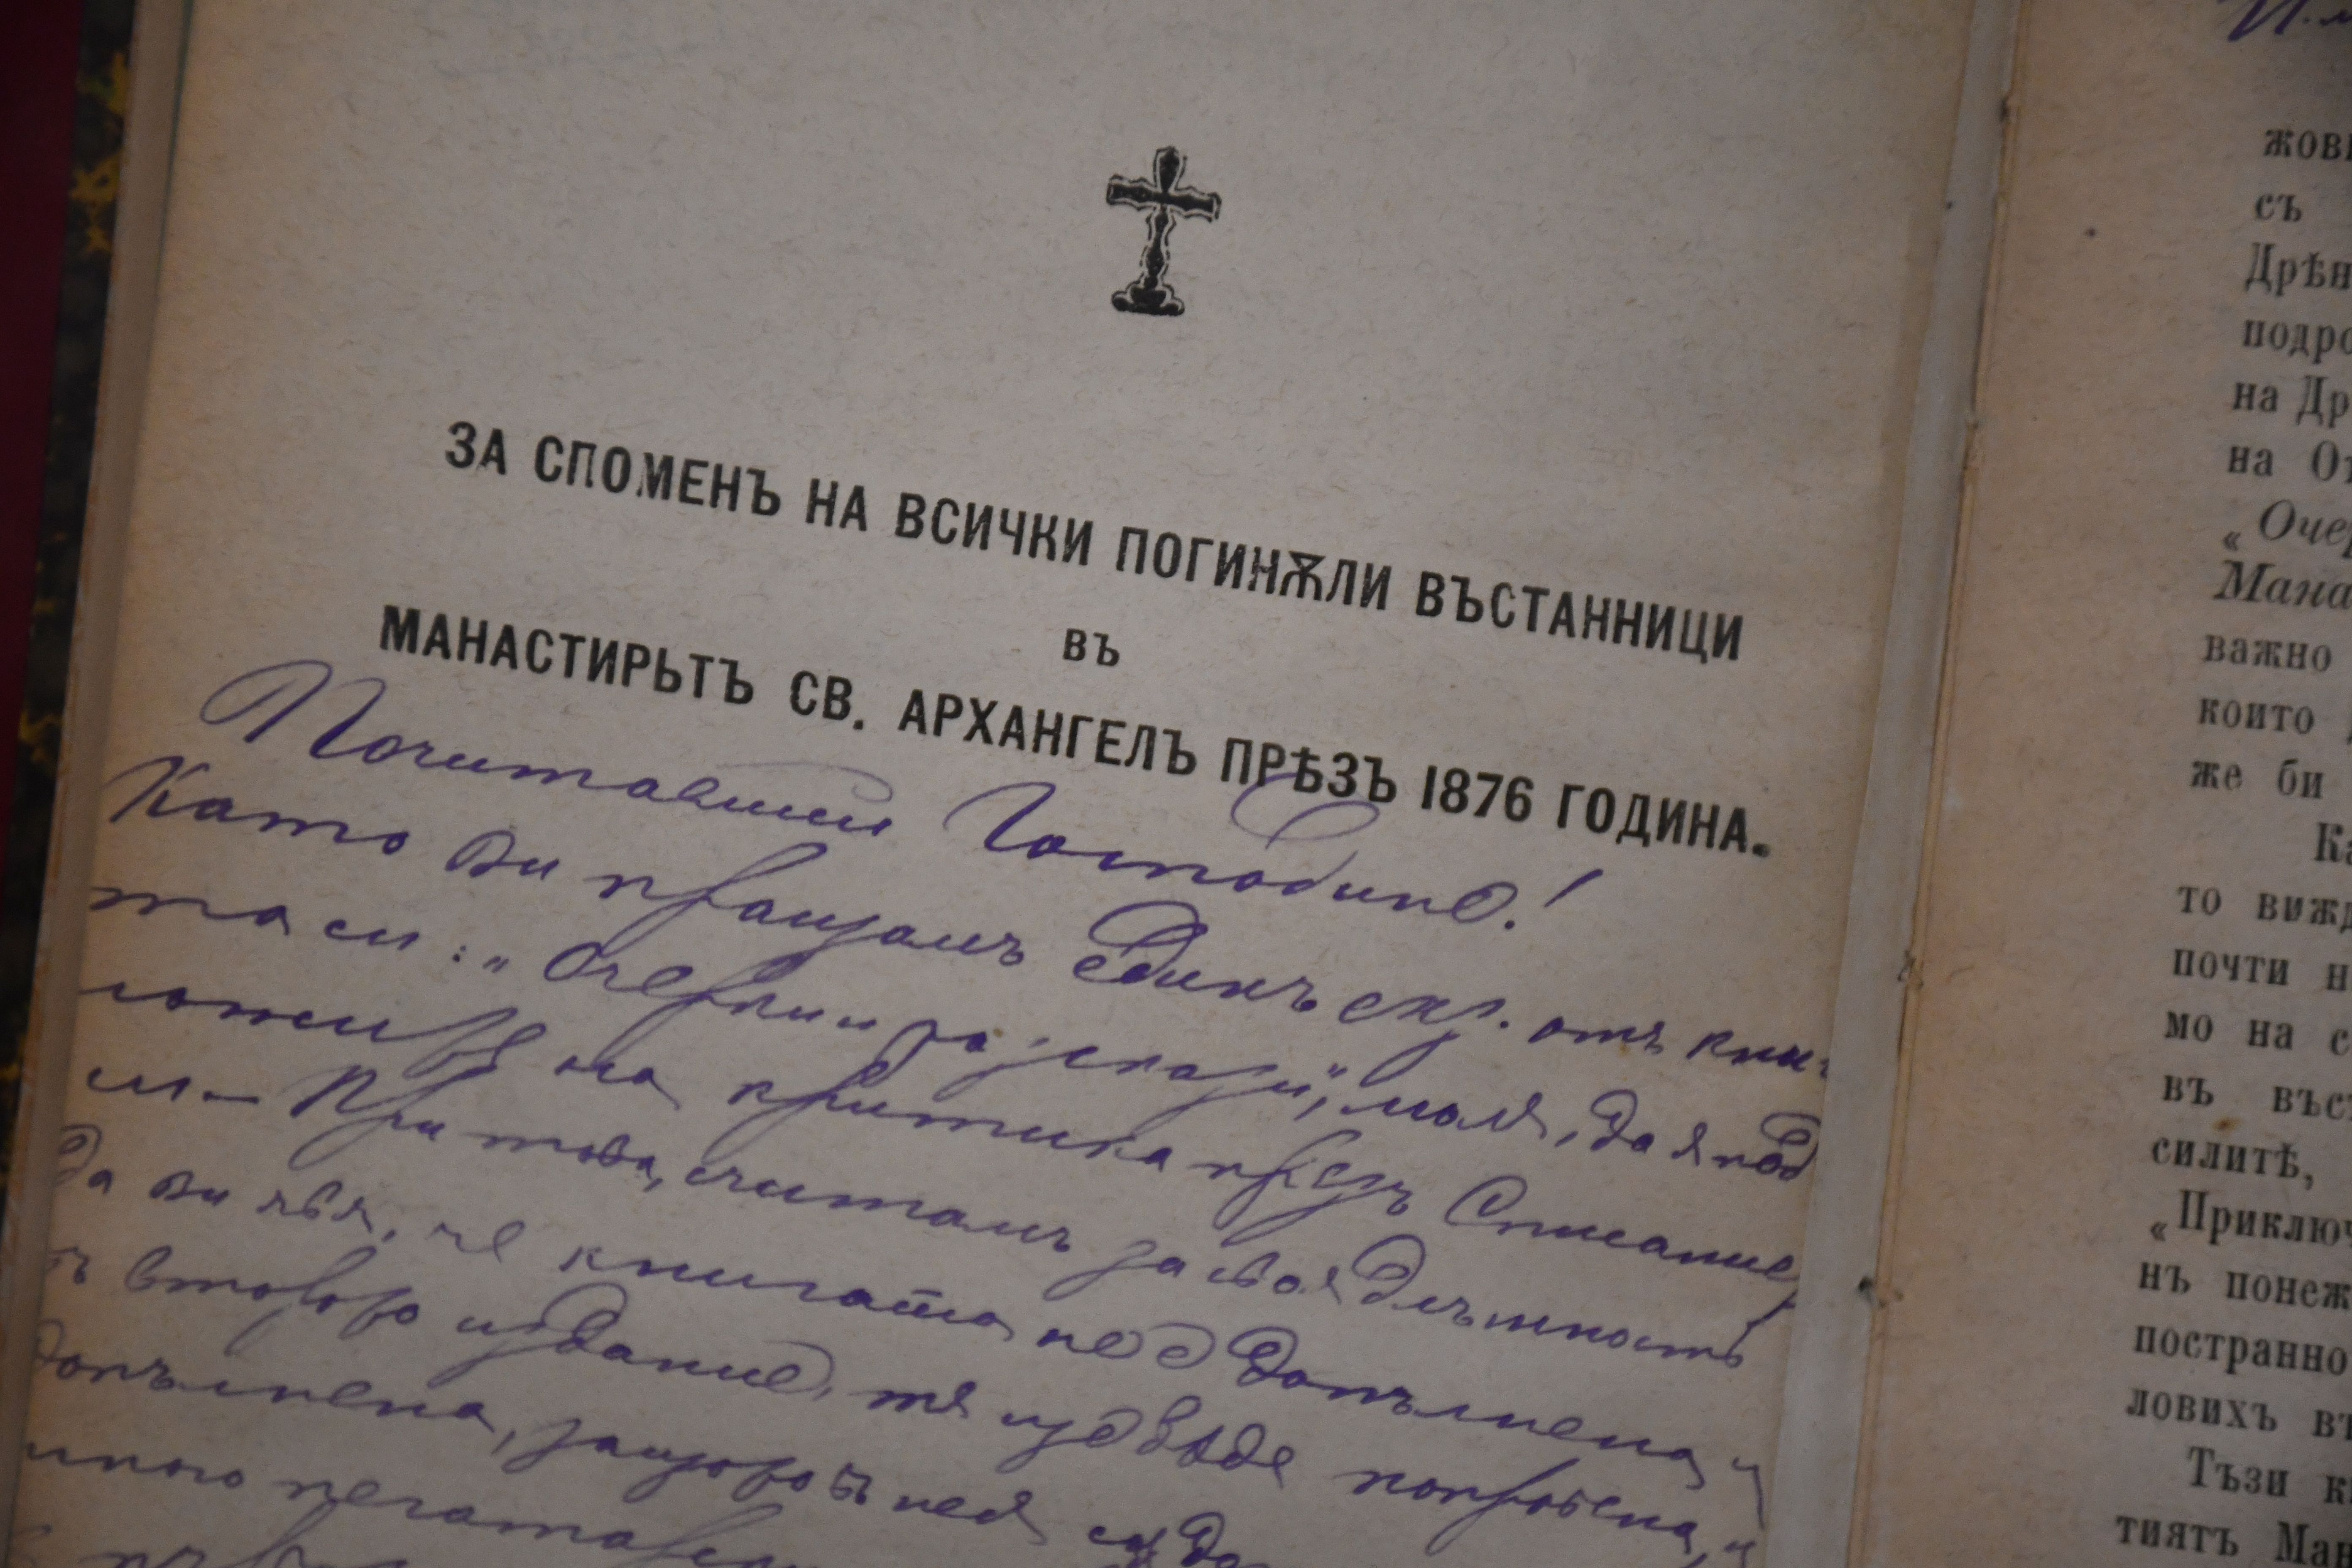 ЗА СПОМЕНЪ НА ВСИЧКИ ПОГИНѪЛИ ВЪСТАННИЦИ
ВЪ
МАНАСТИРЬТЪ СВ. АРХАНГЕЛЪ ПРѢЗЪ 1876 ГОДИНА.
Господине!
Като ви пращамъ единъ екз. отъ кни-
та си: „Очерки и разкази", моля, да я под
ложите на критика презъ Списание
си — При това, считамъ за своя длъжность
да ви явя, че книгата не е допълнена и
второ издание, тя ще бѫде
допълнена, защото въ нея
много
жов
съ
Дрѣн
подро
на Др
на От
„Очер
Мана
важно
които
же би
Ка
то вижд
почти н
мо на с
въ въст
силитѣ,
„Приключ
нъ понеж
постранно
ловихъ въ
Тъзи к
тиятъ Ман